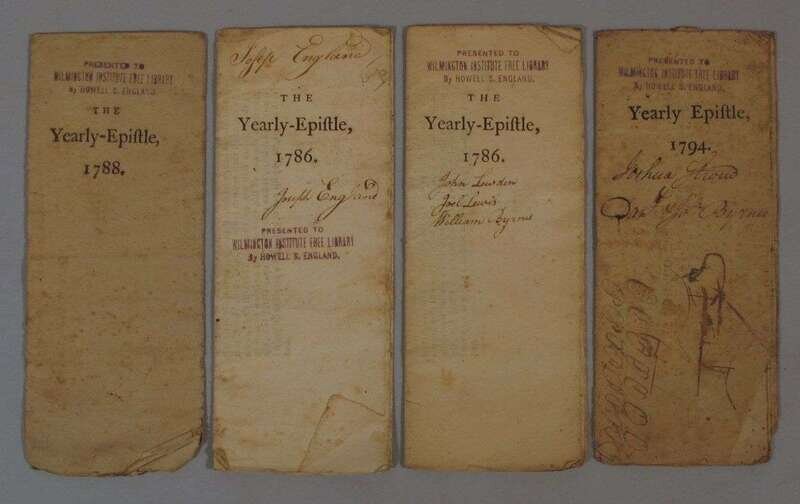 PRESENTED TO
WILMINGTON INSTITUTE FREE LIBRARY
By HOWELL S. ENGLAND.
THE
Yearly-Epiſtle,
1788.
Joſeph England
THE
Yearly-Epiſtle,
1786.
Joseph England
PRESENTED TO
WILMINGTON INSTITUTE FREE LIBRARY
By HOWELL S. ENGLAND.
PRESENTED TO
WILMINGTON INSTITUTE FREE LIBRARY
By HOWELL S. ENGLAND.
THE
Yearly-Epiſtle,
1786.
John
Joel Lewis
William Byrnes
PRESENTED TO
WILMINGTON INSTITUTE FREE LIBRARY
By HOWELL S. ENGLAND.
Yearly Epiſtle,
1794.
Joshua Stroud
Byrnes